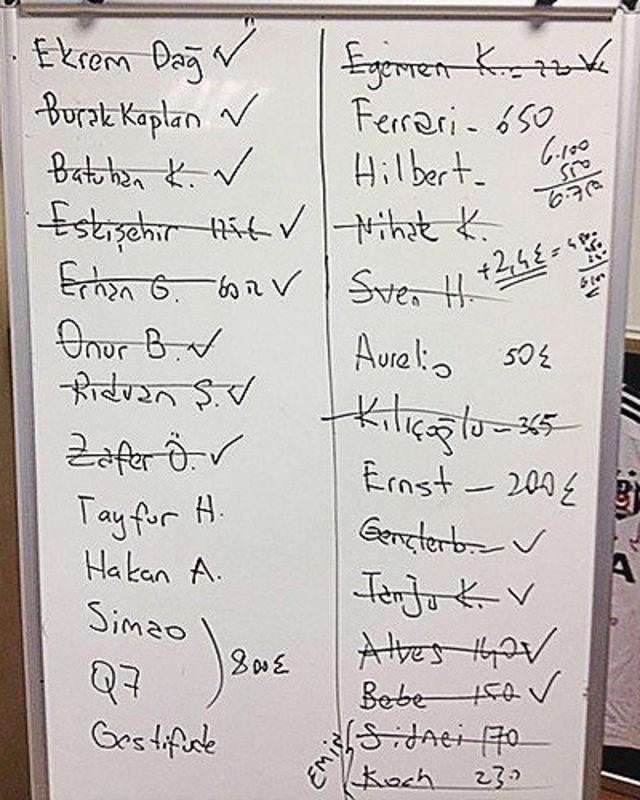 Ekrem Dağ ✓
Burak Kaplan ✓
Batuhan K. ✓
Eskişehir ✓
Erhan G. ✓
Onur B. ✓
Rıdvan Ş. ✓
Zafer Ö. ✓
Tayfur H.
Hakan A.
Simao
Q7
800£
Gestifude
Egemen K. ✓
Ferrari - 650
Hilbert -
6.100
Nihat K.
Sven H. +2,4£ =
Aurelio 50£
Kılıçoğlu - 365
Ernst - 200£
Gençlerb. - ✓
Tanju K. - ✓
Alves 140 ✓
Bebe 150 ✓
Sidnei 170
Koch 230